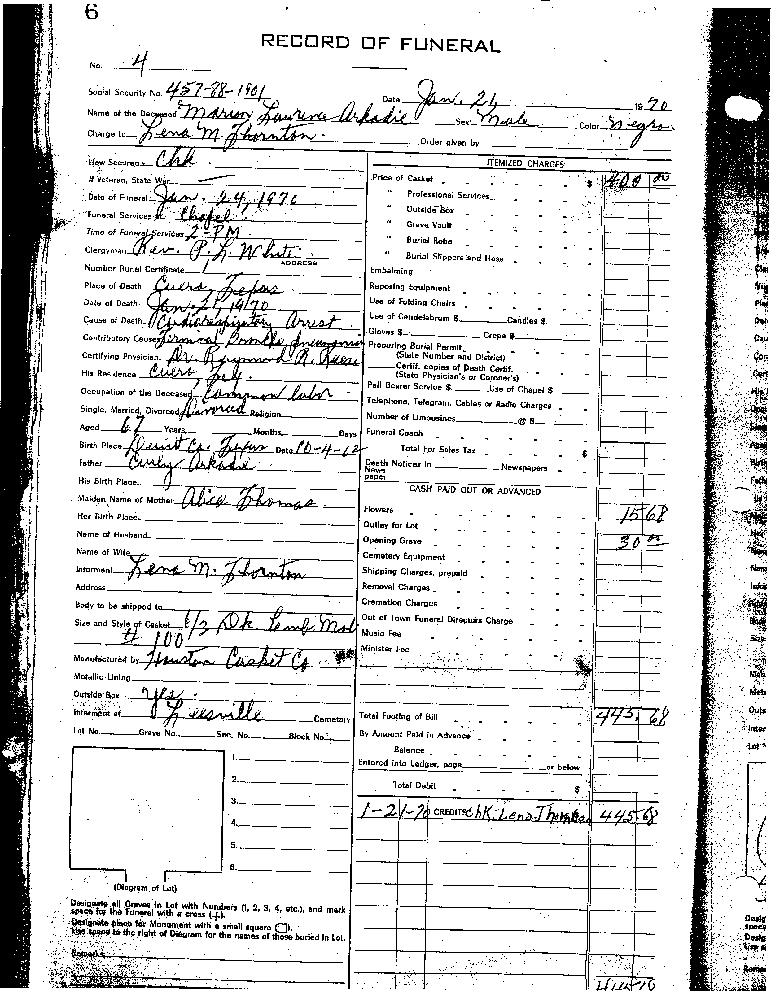 6
RECORD OF FUNERAL
No. 4
Social Security No. 457-88-1901 Date Jan. 21 1970
Name of the Deceased Marion Laurence Arkadie Sex Male Color Negro
Charge to Lena M. Thornton Order given by
How Secured Chk
If Veteran, State War
Date of Funeral Jan. 24, 1970
Funeral Services at Chapel
Time of Funeral Services 2-PM
Clergyman Rev. P. L. White
ADDRESS
Number Burial Certificate
Place of Death Cuero, Texas
Date of Death Jan. 21, 1970
Cause of Death Cardiorespiratory Arrest
Contributory Causes Terminal pneumonia
Certifying Physician Dr. Raymond R. Reese
His Residence Cuero, Tex.
Occupation of the Deceased Common labor
Single, Married, Divorced Divorced Religion
Aged 67 Years Months Days
Birth Place Dewitt Co. Texas Date 10-4-12
Father Curly Arkadie
His Birth Place
Maiden Name of Mother Alice Thomas
Her Birth Place
Name of Husband
Name of Wife
Informant Lena M. Thornton
Address
Body to be shipped to
Size and Style of Casket 6/3 Dk
# 100
Manufactured by Houston Casket Co
Metallic Lining
Outside Box Yes
Interment at Leesville Cemetery
Lot No. Grave No. Sec. No. Block No.
1.
2.
3.
4.
5.
6.
(Diagram of Lot)
Designate all Graves in Lot with Numbers (1, 2, 3, 4, etc.), and mark
space for the Funeral with a cross (+).
Designate place for Monument with a small square (□).
Use space to the right of Diagram for the names of those buried in Lot.
Remarks
ITEMIZED CHARGES
Price of Casket $ 400 00
" Professional Services
" Outside Box
" Grave Vault
" Burial Robe
" Burial Slippers and Hose
Embalming
Reposing Equipment
Use of Folding Chairs
Use of Candelabrum $ Candles $
Gloves $ Crepe $
Procuring Burial Permit
(State Number and District)
Certif. copies of Death Certif.
(State Physician's or Coroner's)
Pall Bearer Service $ Use of Chapel $
Telephone, Telegram, Cables or Radio Charges
Number of Limousines @ $
Funeral Coach
Total For Sales Tax $
Death Notices In Newspapers
News
paper
CASH PAID OUT OR ADVANCED
Flowers 15 68
Outlay for Lot
Opening Grave 30 00
Cemetery Equipment
Shipping Charges, prepaid
Removal Charges
Cremation Charges
Out of Town Funeral Directors Charge
Music Fee
Minister Fee
Total Footing of Bill 445.68
By Amount Paid in Advance
Balance
Entered into Ledger, page or below
Total Debit $
1-21-70 CREDITS Chk. Lena Thornton 445 68